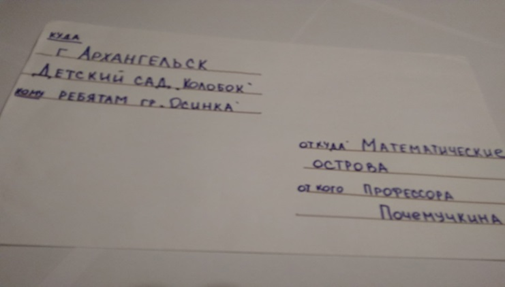 куда
г Архангельск
Детский сад „Колобок"
кому ребятам гр. „Осинка"
откуда Математические
острова
от кого профессора
Почемучкина